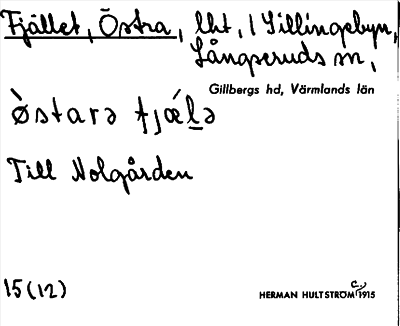 Fjället, Östra, lht, / Sillingebyn,
Långseruds sn,
Gillbergs hd, Värmlands län
ø̀starə fjǽl̲ə
Till Nolgården
15(12)
HERMAN HULTSTRÖM c. 1915